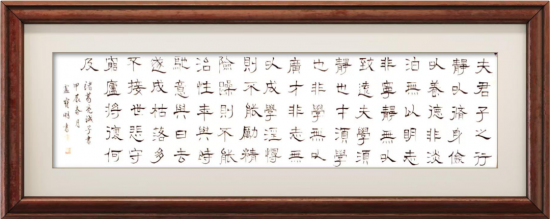 夫君子之行
靜以脩身儉
以養德非淡
泊無以明志
非寧靜無以
致遠夫學須
靜也才須學
也非學無以
廣才非志無
以成學淫慢
則不能勵精
險躁則不能
治性年與時
馳意與日去
遂成枯落多
不接世悲守
窮廬將復何
及
諸葛亮誡子書
甲辰春月